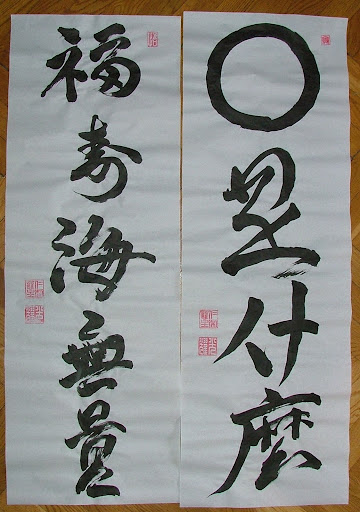 ○是什麼
福寿海無量